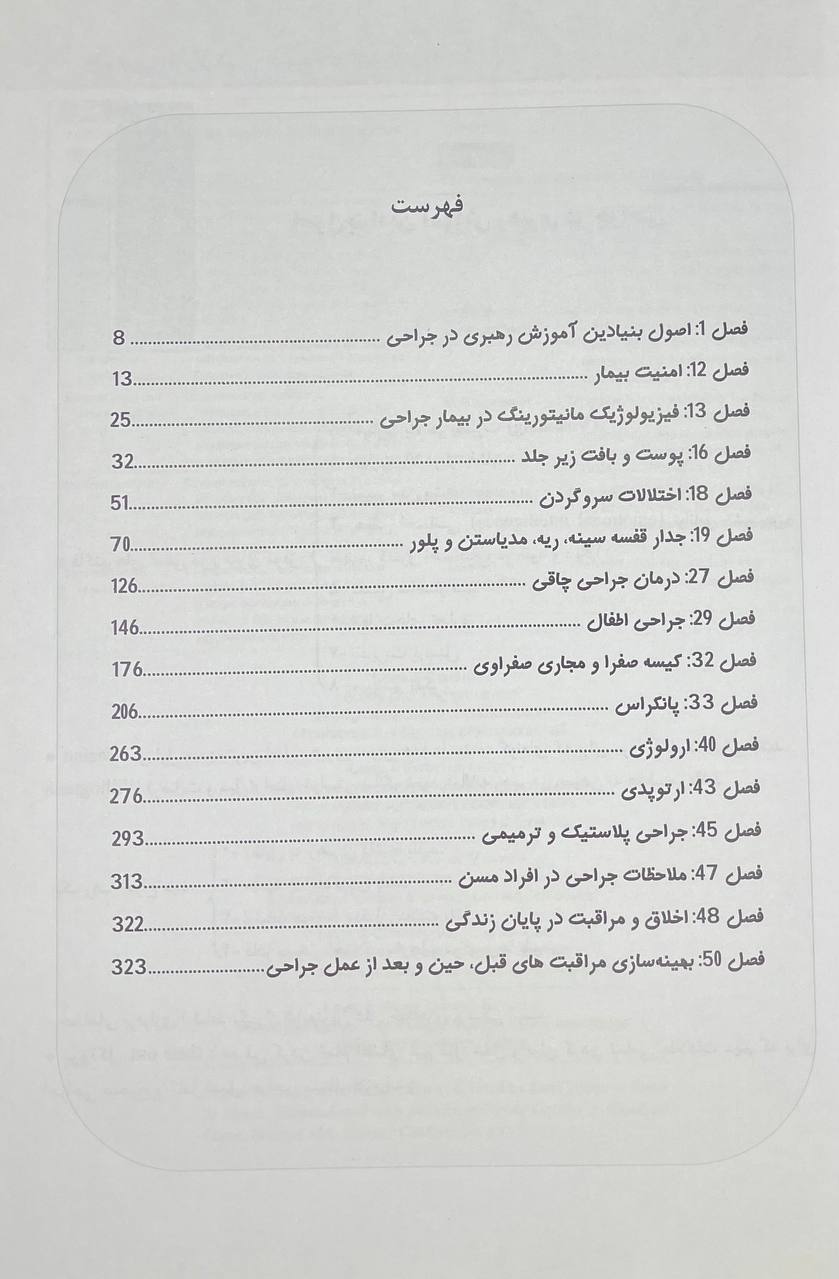 فهرست
فصل 1: اصول بنیادین آموزش رهبری در جراحی ........ 8
فصل 12: امنیت بیمار ........ 13
فصل 13: فیزیولوژیک مانیتورینگ در بیمار جراحی ........ 25
فصل 16: پوست و بافت زیر جلد ........ 32
فصل 18: اختلالات سروگردن ........ 51
فصل 19: جدار قفسه سینه، ریه، مدیاستن و پلور ........ 70
فصل 27: درمان جراحی چاقی ........ 126
فصل 29: جراحی اطفال ........ 146
فصل 32: کیسه صفرا و مجاری صفراوی ........ 176
فصل 33: پانکراس ........ 206
فصل 40: ارولوژی ........ 263
فصل 43: ارتوپدی ........ 276
فصل 45: جراحی پلاستیک و ترمیمی ........ 293
فصل 47: ملاحظات جراحی در افراد مسن ........ 313
فصل 48: اخلاق و مراقبت در پایان زندگی ........ 322
فصل 50: بهینه‌سازی مراقبت های قبل، حین و بعد از عمل جراحی ........ 323